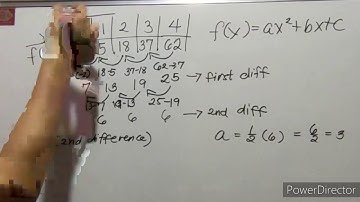 x 1 2 3 4 f(x)=ax²+bx+c
f( 5 18 37 62
18-5 37-18 62-37
7 13 19 25 → first diff
19-13 25-19
6 6 6 → 2nd diff
(2nd difference) a = 1/2 (6) = 6/2 = 3
PowerDirector